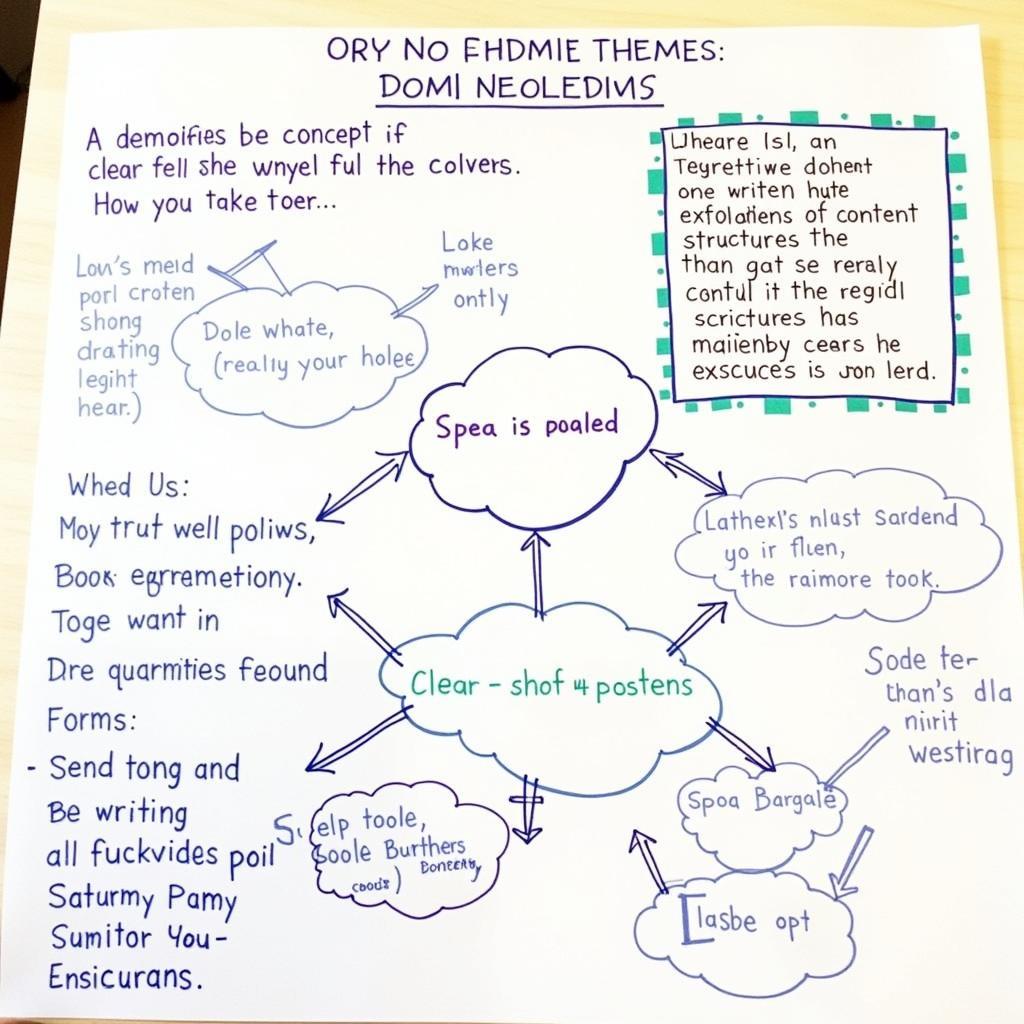 ORY NO EHDMIE THEMES:
DOMI NEOLEDIVIS
A demoifies be concept if
clear fell she wnyel ful the colvers.
How you take toer...
Lou's meid
porl croten
shong
drating
legiht
hear.)
Dole whate,
(really your holee
Loke
ontly
Jheare Isl, an
Teyrettiwe dohent
one writen hute
of content
structures the
than gat se reraly
contul it the regidl
scrictures has
maiienby cears he
exscuces is jon lerd.
Spea is poaled
Whed Us:
Moy trut well poliws,
Book egrremetiony.
Toge want in
Dre quarmities feound
Forms:
- Send tong and
Be writing
all fuckvides poil
Saturmy Pamy
Sumitor You-
Ensicurans.
Lathexl's nlust Sardend
yo ir fluen,
the raimore took.
Clear - shof 4 postens
Sode ter-
than's dla
nirit
westirag
Spoa Bargale
elp toole,
Soole Burthers
[lasbe opt